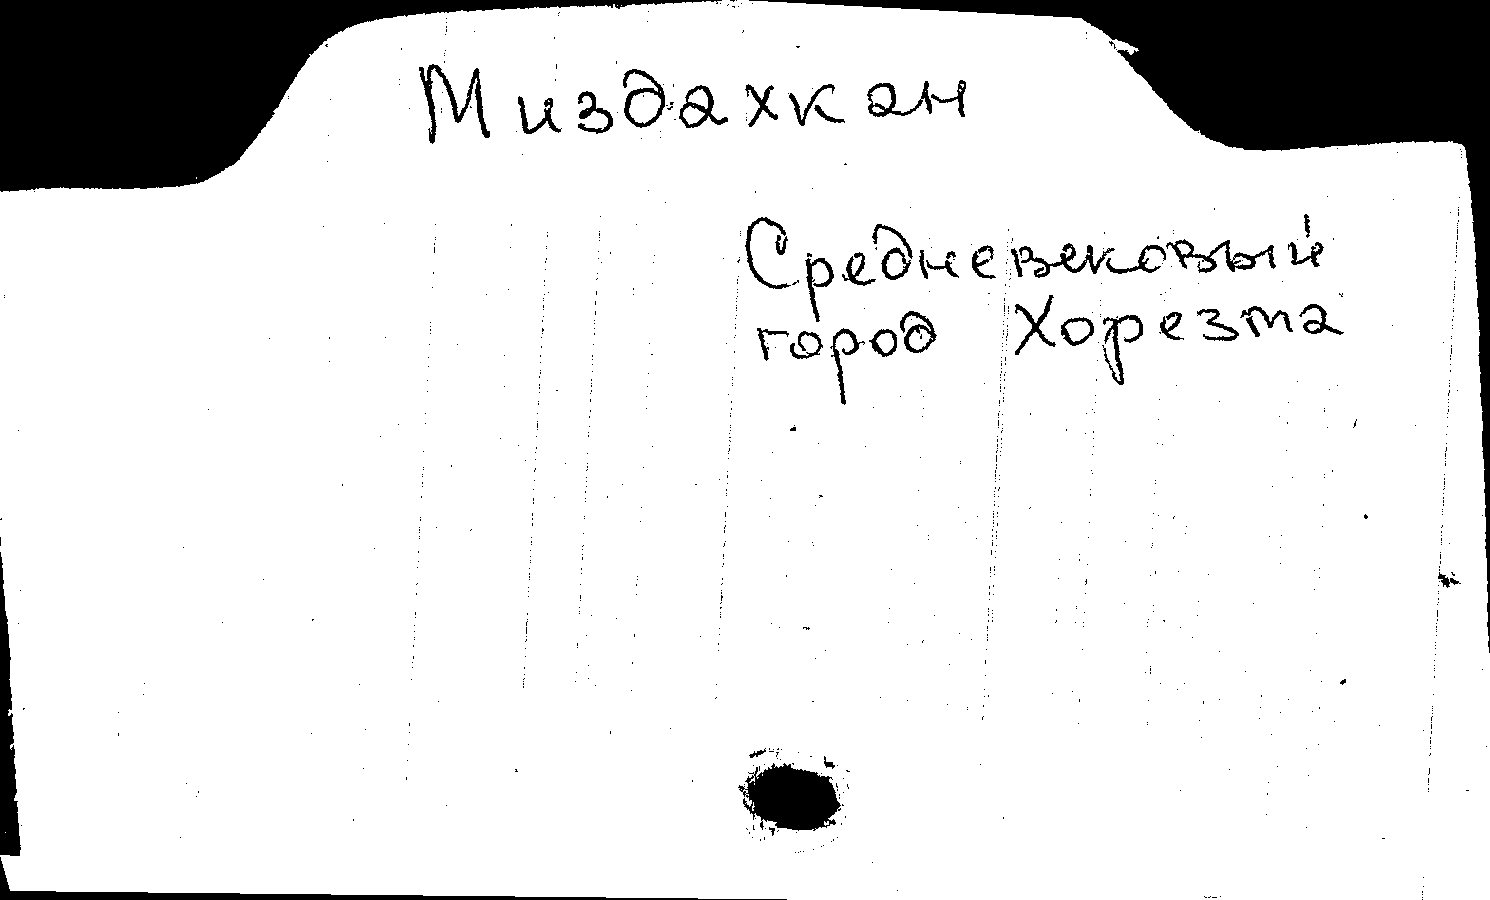 Миздахкан
Средневековый
город Хорезма